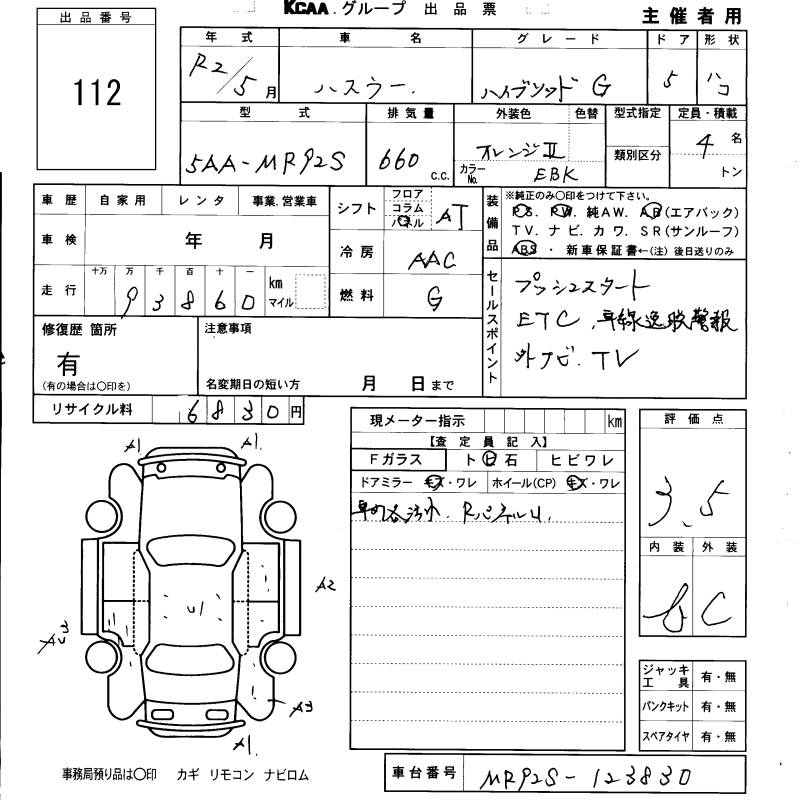 KCAA.グループ 出品票
主催者用
出品番号
112
年式 車名 グレード ドア 形状
R2/5月 ハスラー. ハイブリッド G 5 ハコ
型式 排気量 外装色 色替 型式指定 定員・積載
5AA-MR92S 660 c.c. オレンジII 類別区分 4名
カラーNo. EBK トン
車歴 自家用 レンタ 事業.営業車
シフト フロア コラム パネル AT
装備品
※純正のみ○印をつけて下さい。
PS. PW. 純AW. AB(エアバック)
TV. ナビ. カワ. SR(サンルーフ)
ABS・新車保証書←(注)後日送りのみ
車検 年 月
冷房 AAC
走行 十万 万 千 百 十 一 km マイル
93860
燃料 G
セールスポイント
プッシュスタート
ETC. 車線逸脱警報
外ナビ. TV
修復歴 箇所
有
(有の場合は○印を)
注意事項
名変期日の短い方 月 日まで
リサイクル料 6830円
現メーター指示 km
【査定員記入】
Fガラス ト ビ 石 ヒビワレ
ドアミラー キズ・ワレ ホイール(CP) キズ・ワレ
評価点
3.5
内装 外装
C
A1 A1.
U1
A2
A3
A1.
ジャッキ工具 有・無
パンクキット 有・無
スペアタイヤ 有・無
事務局預り品は○印 カギ リモコン ナビロム
車台番号 MR92S-123830